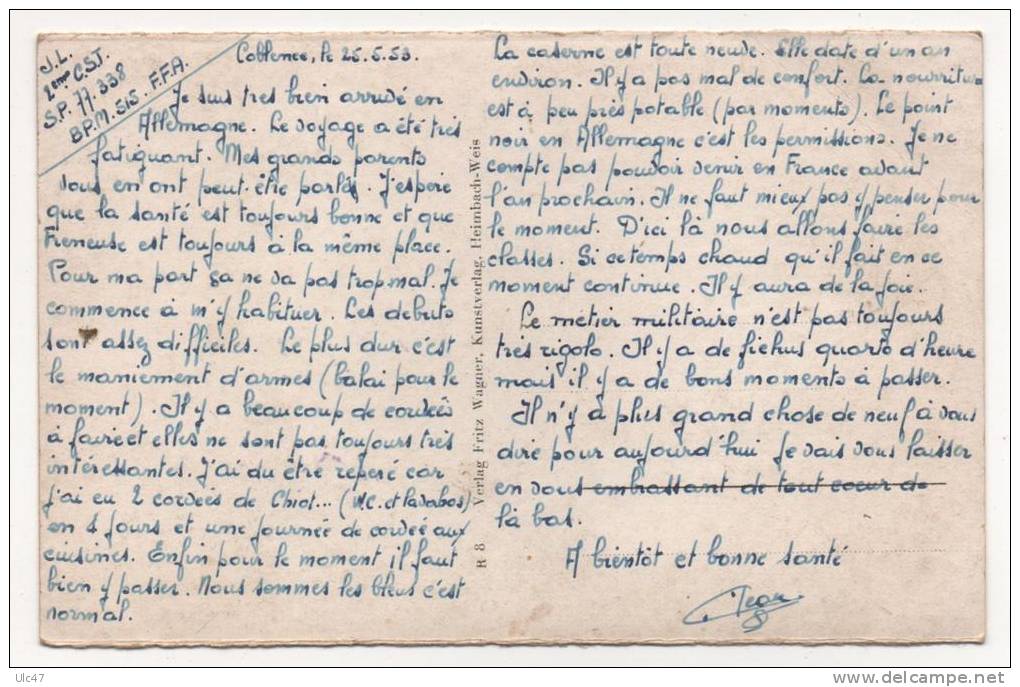 J.L.
2ème C.S.T.
S.P. 77.338
B.P.M. 515. F.F.A.
Coblence, le 25.5.53.
Je suis tres bien arrivé en
Allemagne. Le voyage a été très
fatiguant. Mes grands parents
vous en ont peut-être parlés. J'espère
que la santé est toujours bonne et que
Freneuse est toujours à la même place.
Pour ma part ça ne va pas trop mal. Je
commence à m'y habituer. Les debuts
sont assez difficiles. Le plus dur c'est
le maniement d'armes (balai pour le
moment). Il y a beaucoup de corvées
à faire et elles ne sont pas toujours très
intéressantes. J'ai du être reperé car
j'ai eu 2 corvées de Chiot... (W.C. et lavabos)
en 4 jours et une journée de corvée aux
cuisines. Enfin pour le moment il faut
bien y passer. Nous sommes les bleus c'est
normal.
La caserne est toute neuve. Elle date d'un an
environ. Il y a pas mal de confort. La nourriture
est à peu près potable (par moments). Le point
noir en Allemagne c'est les permissions. Je ne
compte pas pouvoir venir en France avant
l'an prochain. Il ne faut mieux pas y penser pour
le moment. D'ici là nous allons faire les
classes. Si ce temps chaud qu'il fait en ce
moment continue. Il y aura de la joie.
Le métier militaire n'est pas toujours
très rigolo. Il y a de fichus quarts d'heure
mais il y a de bons moments à passer.
Il n'y a plus grand chose de neuf à vous
dire pour aujourd'hui je vais vous laisser
en vous embrassant de tout coeur de
là bas.
A bientôt et bonne santé
Jean
R 8 Verlag Fritz Wagner, Kunstverlag, Heimbach-Weis
Ulc47
www.delcampe.net